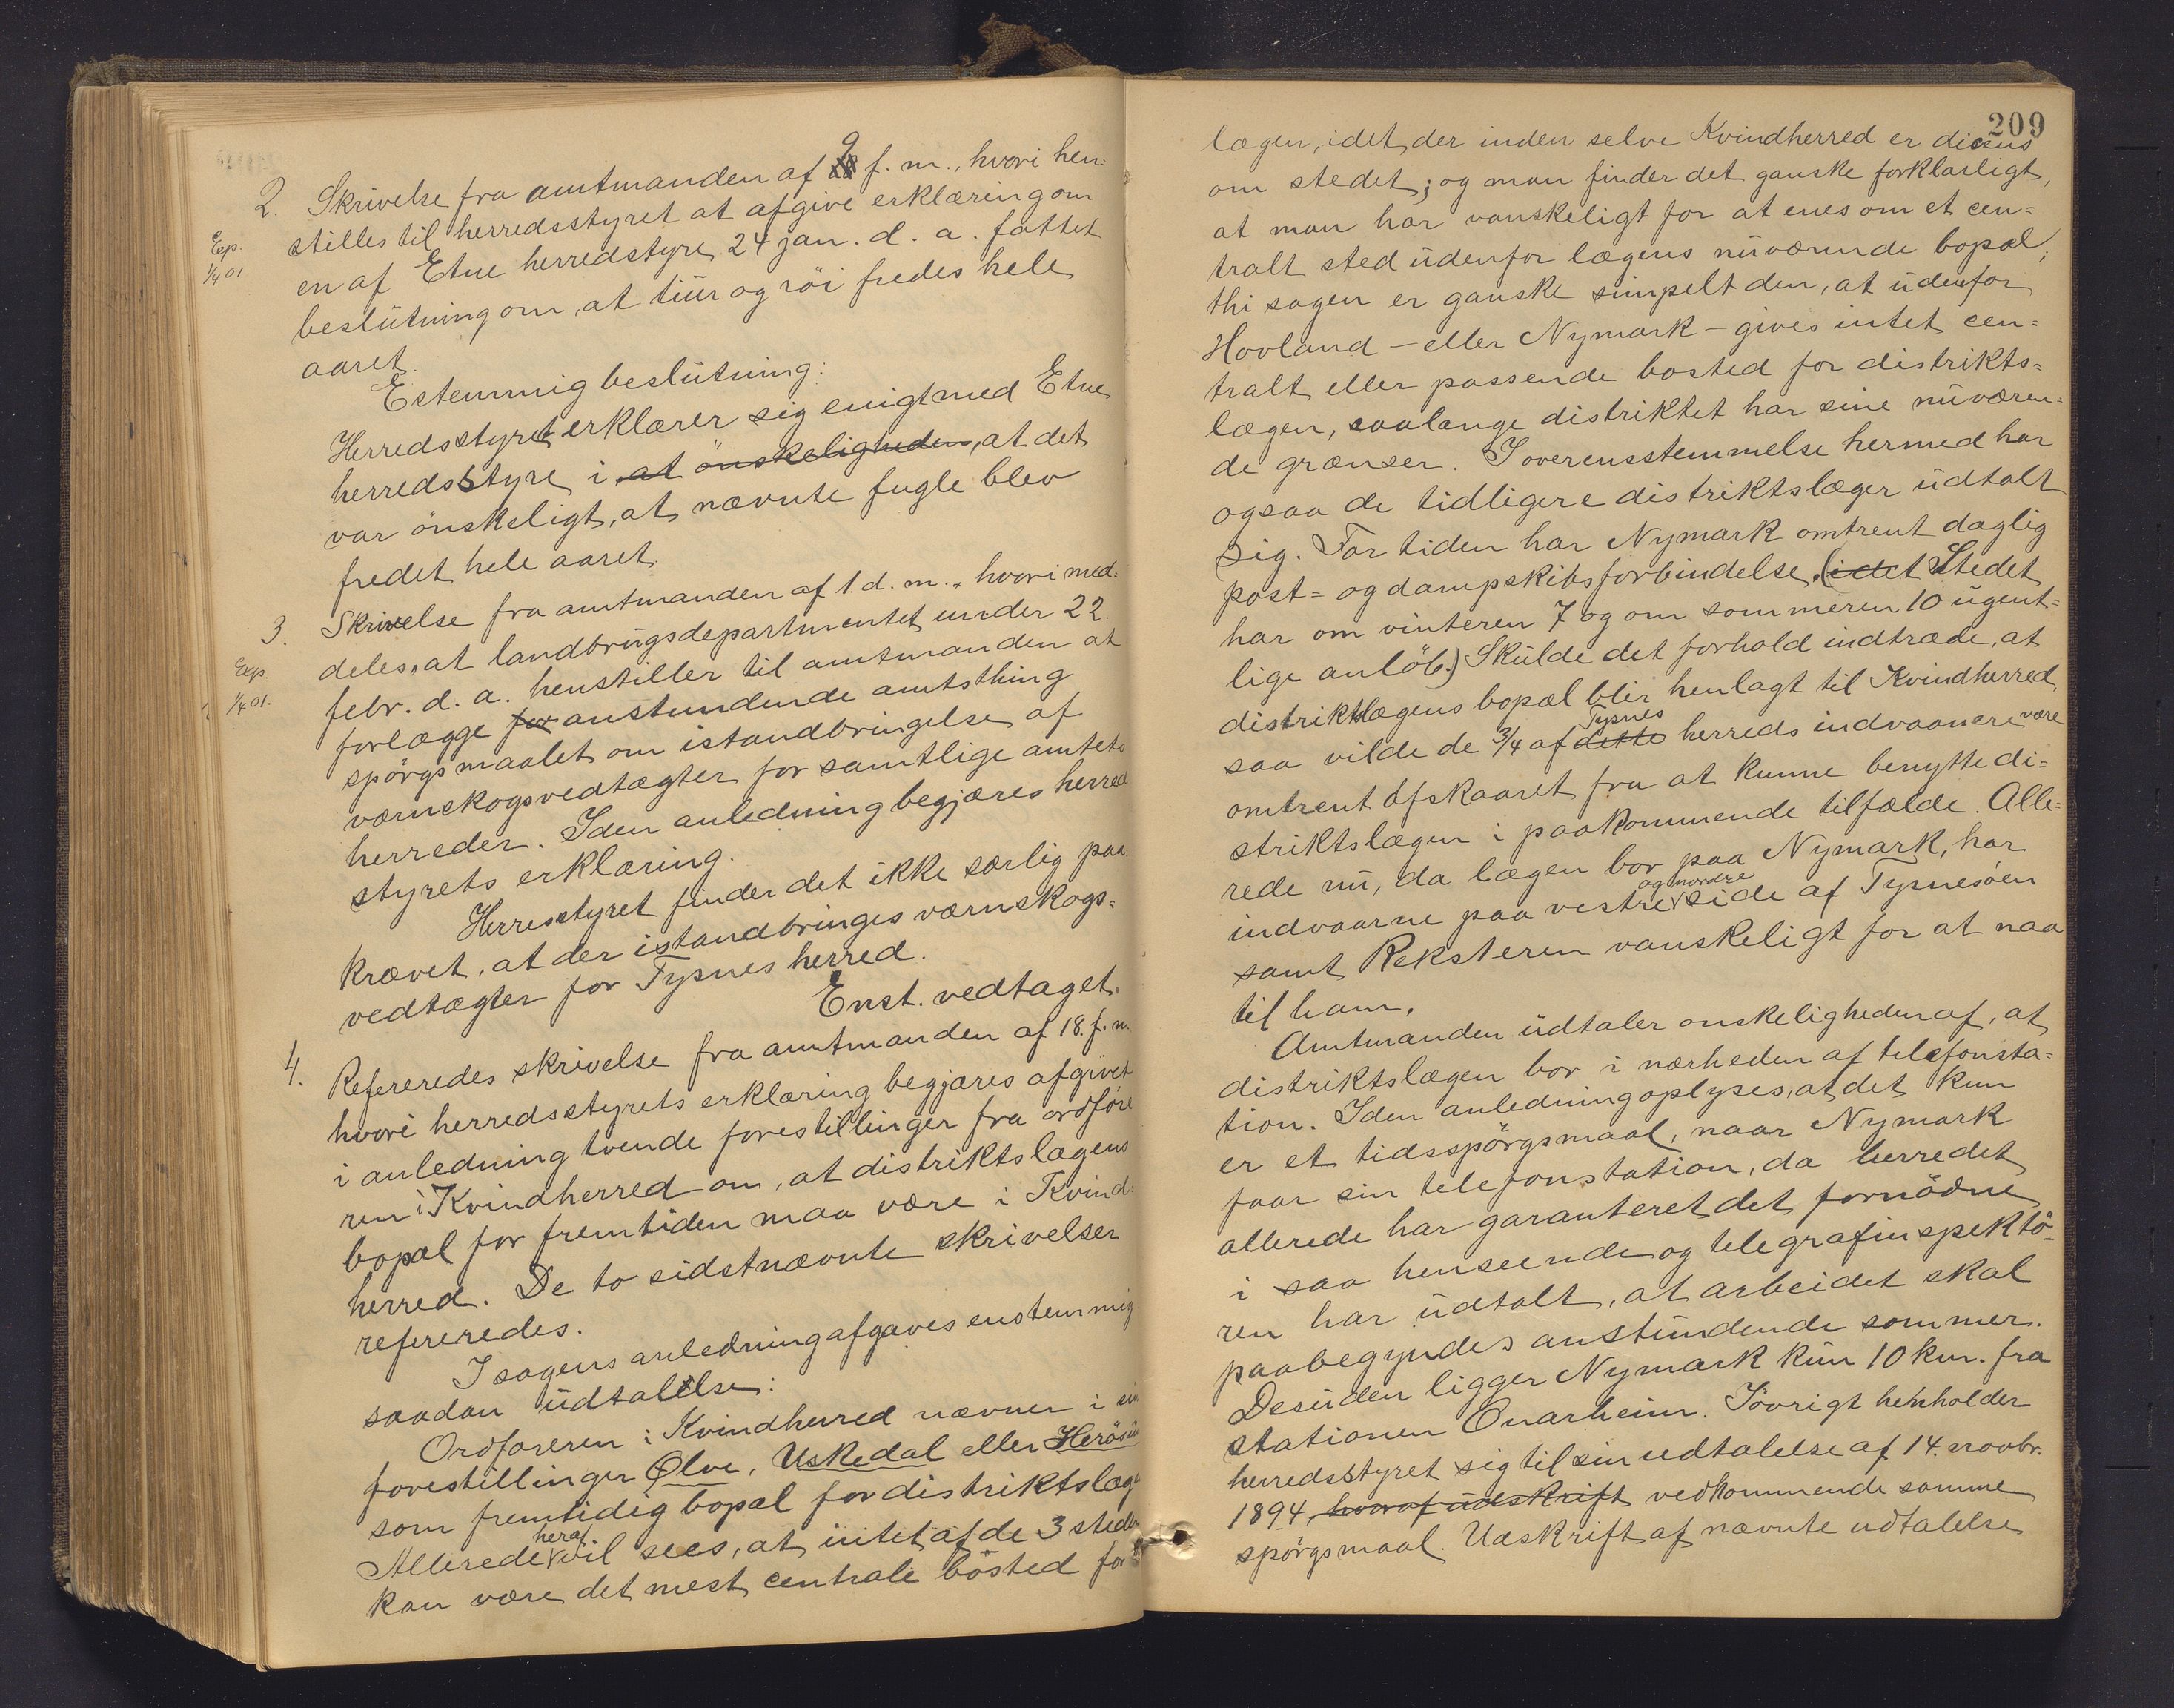 2. Skrivelse fra amtmanden af 9 f. m., hvori hen=
stilles til herredsstyret at afgive erklæring om
Exp.
1/4 01
en af Etne herredstyre 24 jan. d. a. fattet
beslutning om, at tiur og röi fredes hele
aaret.
Estemmig beslutning:
Herredsstyret erklærer sig enigt med Etne
herredsstyre i, at önskeligheden, at det
var önskeligt, at nævnte fugle blev
fredet hele aaret.
3. Skrivelse fra amtmanden af 1. d. m., hvori med=
deles, at landbrugsdepartmentet under 22.
Exp.
1/4 01.
febr. d. a. henstiller til amtmanden at
forlægge for anstundende amtsthing
spörgsmaalet om istandbringelse af
værnskogsvedtægter for samtlige amtets
herreder. I den anledning begjæres herred
styrets erklæring.
Herresstyret finder det ikke særlig paa
krævet, at der istandbringes værnskogs=
vedtægter for Tysnes herred.
Enst. vedtaget.
4. Refereredes skrivelse fra amtmanden af 18. f. m
hvori herredsstyrets erklæring begjæres afgivet
i anledning tvende forestillinger fra ordföre
ren i Kvindherred om, at distriktslægens
bopæl for fremtiden maa være i Kvind=
herred. De to sidstnævnte skrivelser
refereredes.
I sagens anledning afgaves enstemmig
saadan udtalelse:
Ordføreren i Kvindherred nævner i sin
forestillinger Ølve, Uskedal eller Herösun
som fremtidig bopæl for distriktslæge
Allerede heraf vil sees, at intet af de 3 steder
kan være det mest centrale bosted for
209
lægen, idet der inden selve Kvindherred er dissens
om stedet; og man finder det ganske forklarligt,
at man har vanskeligt for at enes om et cen=
tralt sted udenfor lægens nuværende bopæl;
thi sagen er ganske simpelt den, at udenfor
Hovland – eller Nymark – gives intet cen=
tralt eller passende bosted for distrikts=
lægen, saalænge distriktet har sine nuværen=
de grænser. I overensstemmelse hermed har
ogsaa de tidligere distriktslæger udtalt
sig. For tiden har Nymark omtrent daglig
post= og dampskibsforbindelse. (idet Stedet
har om vinteren 7 og om sommeren 10 ugent=
lige anlöb.) Skulde det forhold indtræde, at
distriktslægens bopæl blir henlagt til Kvindherred,
saa vilde de 3/4 af dette Tysnes herreds indvaanere være
omtrent afskaaret fra at kunne benytte di=
striktslægen i paakommende tilfælde. Alle=
rede nu, da lægen bor paa Nymark, har
indvaarne paa vestre og nordre side af Tysnesöen
samt Reksteren vanskeligt for at naa
til ham.
Amtmanden udtaler onskeligheden af, at
distriktslægen bor i nærheden af telefonsta=
tion. I den anledning oplyses, at det kun
er et tidsspörgsmaal, naar Nymark
faar sin telefonstation, da herredet
allerede har garanteret det fornödne
i saa henseende og telegrafinspektö=
ren har udtalt, at arbeidet skal
paabegyndes anstundende sommer.
Desuden ligger Nymark kun 10 km. fra
stationen Onarheim. Iövrigt henholder
herredsstyret sig til sin udtalelse af 14. novbr.
1894, hvoraf udskrift vedkommende samme
spörgsmaal. Udskrift af nævnte udtalelse